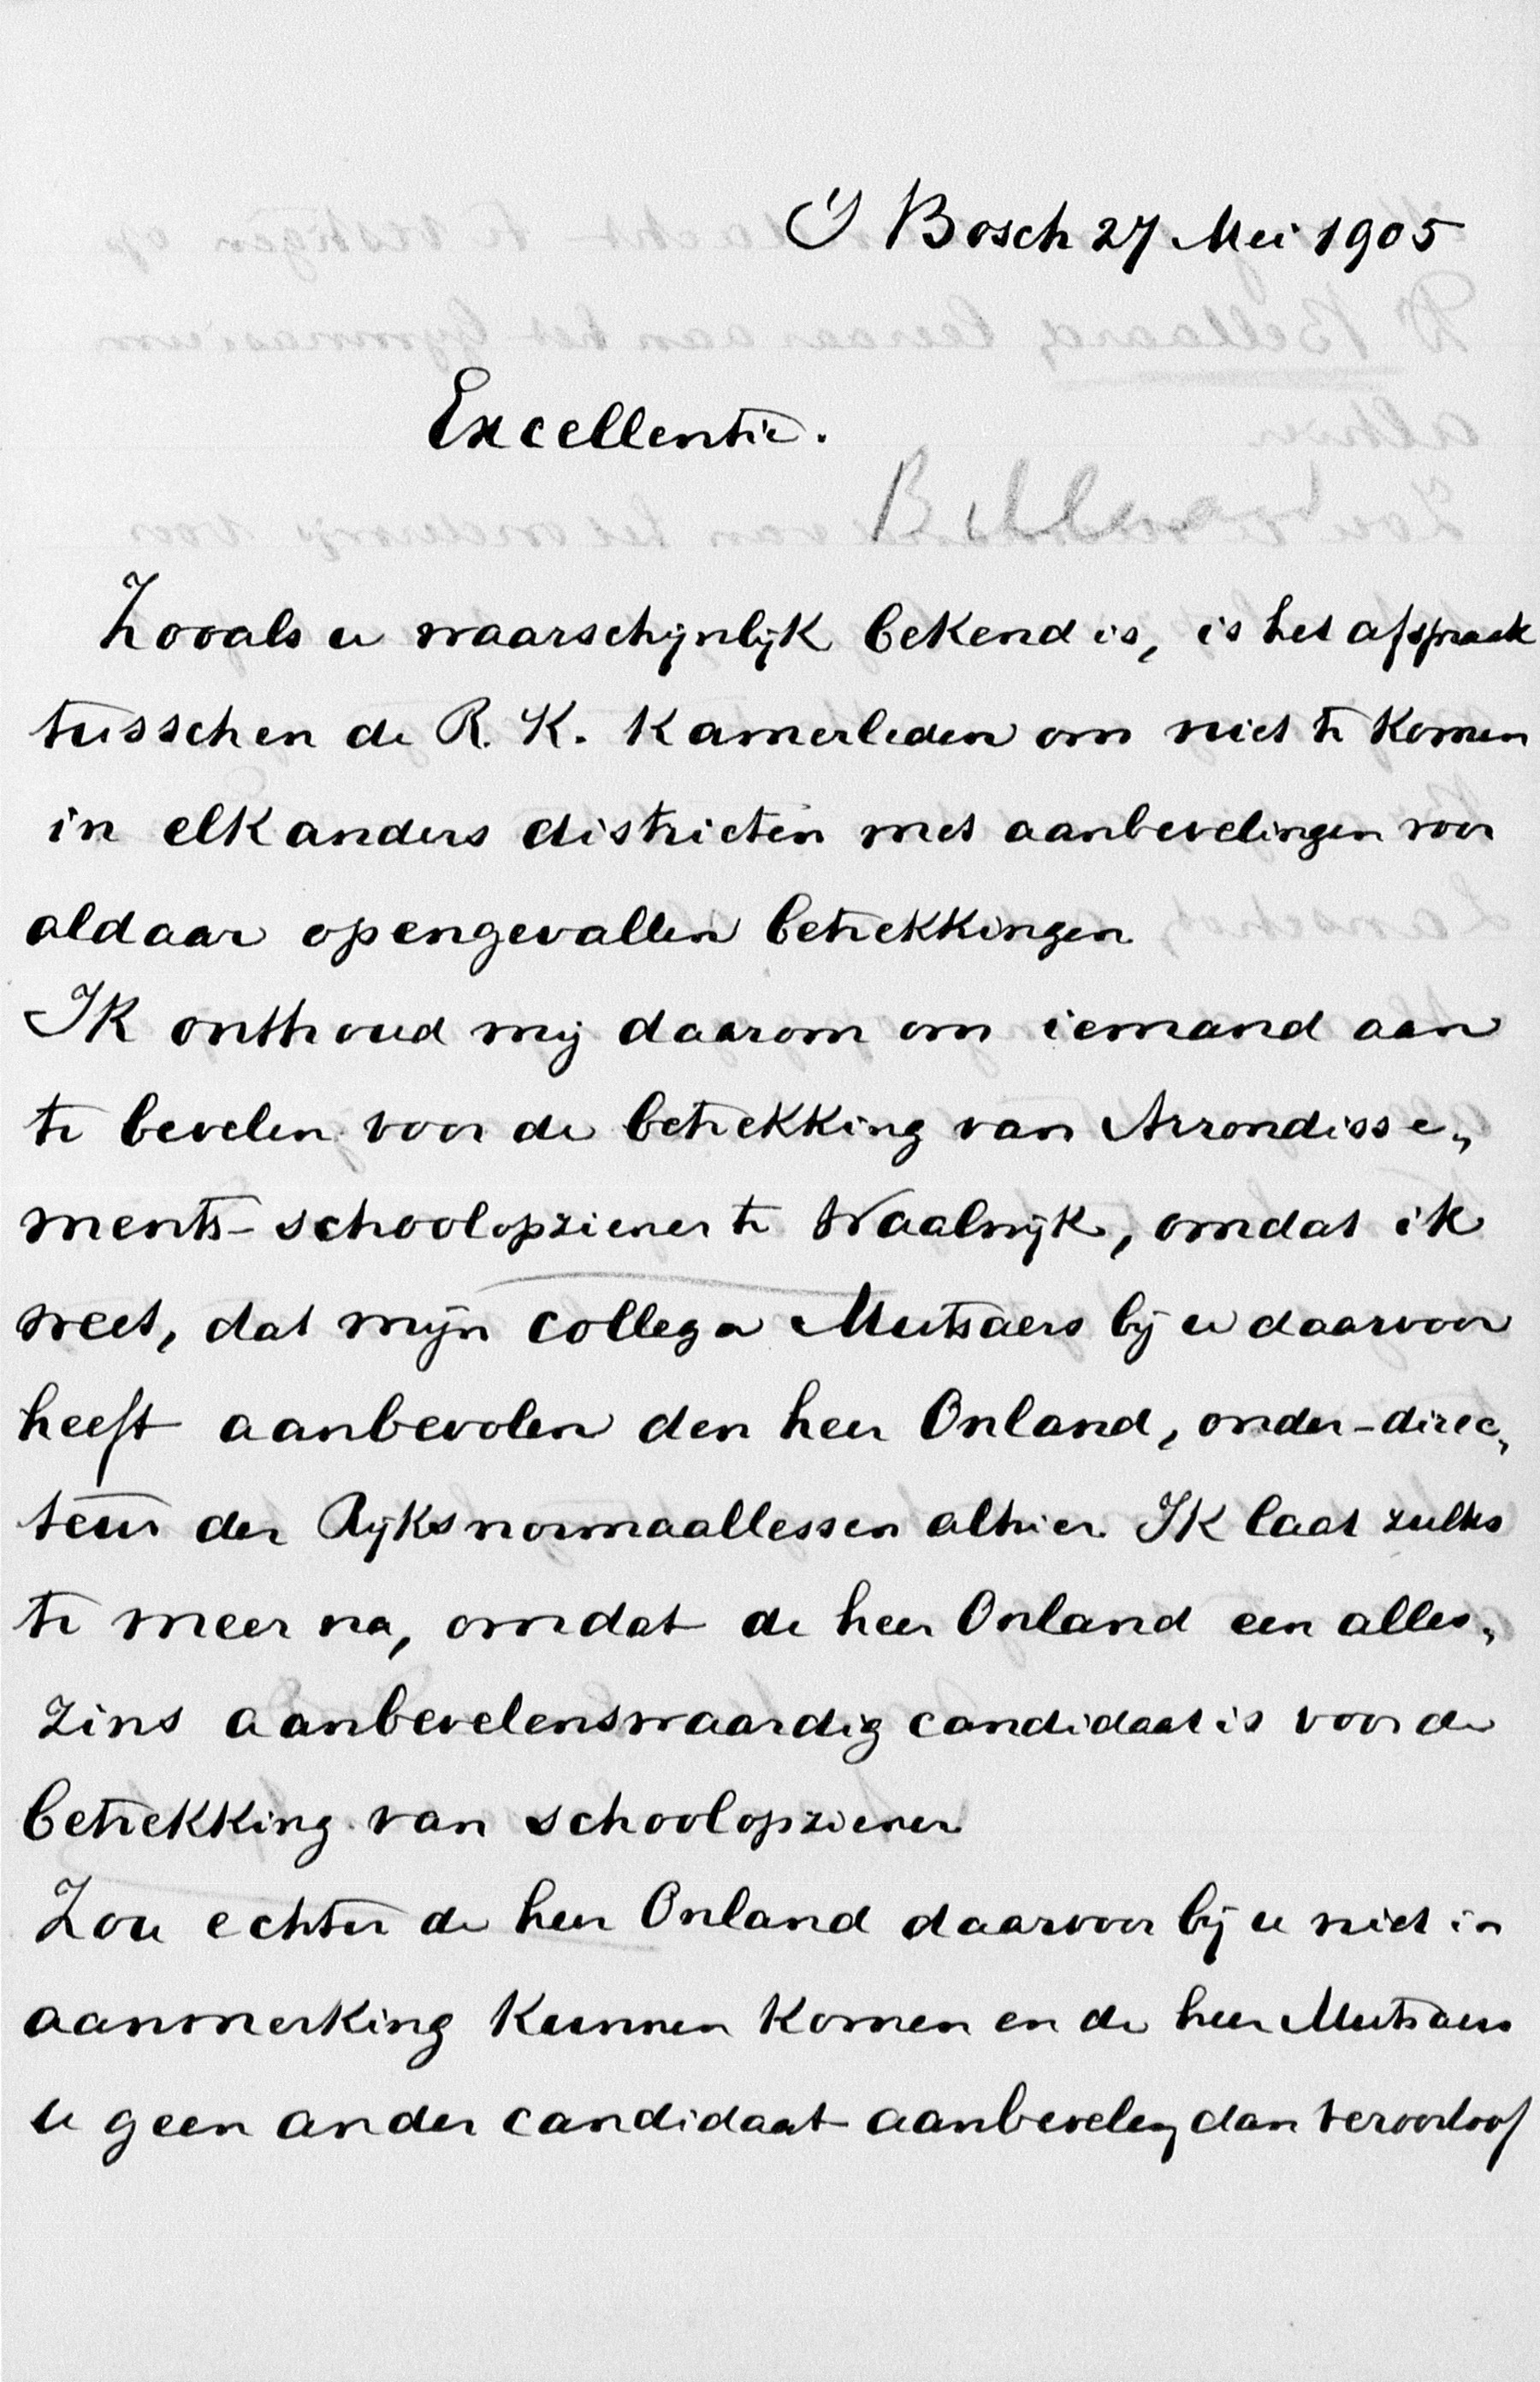 'S Bosch 27 Mei 1905
Excellentie.
Bellaard
Zooals u waarschijnlijk bekend is, is het afspraak
tusschen de R. K. Kamerleden om niet te komen
in elkanders districten met aanbevelingen voor
aldaar opengevallen betrekkingen
Ik onthoud mij daarom om iemand aan
te bevelen voor de betrekking van Arrondisse„
ments-schoolopziener te Waalwijk, omdat ik
weet, dat mijn collega Mutsaers bij u daarvoor
heeft aanbevolen den heer Onland, onder-direc„
teur der Rijksnormaallessen alhier. Ik laat zulks
te meer na, omdat de heer Onland een alles„
zins aanbevelenswaardig candidaat is voor de
betrekking van schoolopziener
Zou echter de heer Onland daarvoor bij u niet in
aanmerking kunnen komen en de heer Mutsaers
u geen ander candidaat aanbevelen, dan veroorloof